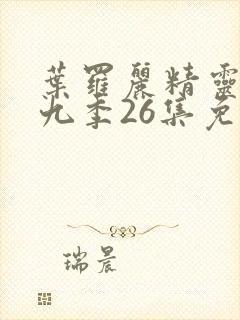 葉羅麗精靈
九季26集免
瑞晨